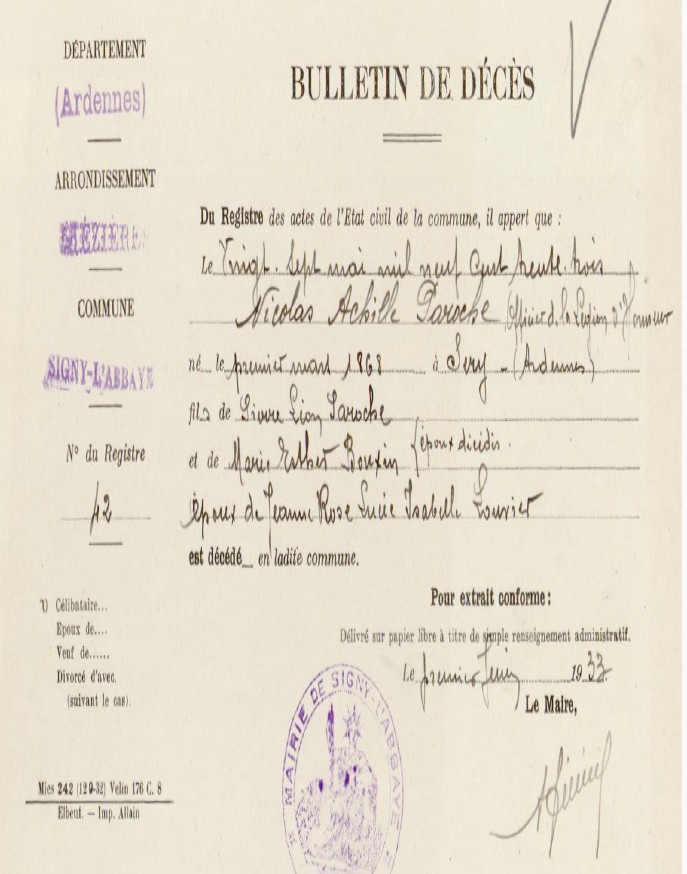 DÉPARTEMENT
(Ardennes)
ARRONDISSEMENT
MÉZIÈRES
COMMUNE
SIGNY-L'ABBAYE
N° du Registre
42
1) Célibataire...
Epoux de....
Veuf de......
Divorcé d'avec.
(suivant le cas).
Mies 242 (12 9-32) Velin 176 C. 8
Elbeuf. — Imp. Allain
BULLETIN DE DÉCÈS
Du Registre des actes de l'Etat civil de la commune, il appert que :
Le Vingt-Sept mai mil neuf cent trente-trois
Nicolas Achille Paroche Officier de la Légion d'Honneur
né le premier mars 1868 à Sery - (Ardennes)
fils de Pierre Léon Paroche
et de Marie Esther Bouxin { époux décédés.
époux de Jeanne Rose Lucie Isabelle
est décédé en ladite commune.
Pour extrait conforme :
Délivré sur papier libre à titre de simple renseignement administratif.
Le premier Juin 1933
Le Maire,
MAIRIE DE SIGNY-L'ABBAYE